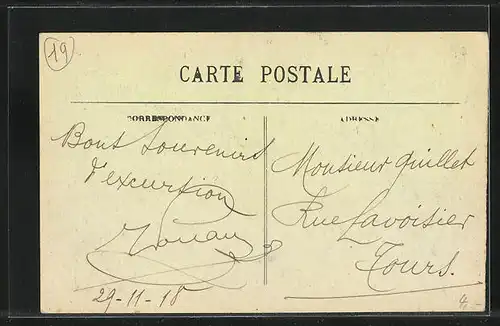 19
CARTE POSTALE
CORRESPONDANCE
ADRESSE
Bons Souvenirs
d'excursion
29-11-18
Monsieur Guillet
Rue Lavoisier
Tours.
4,